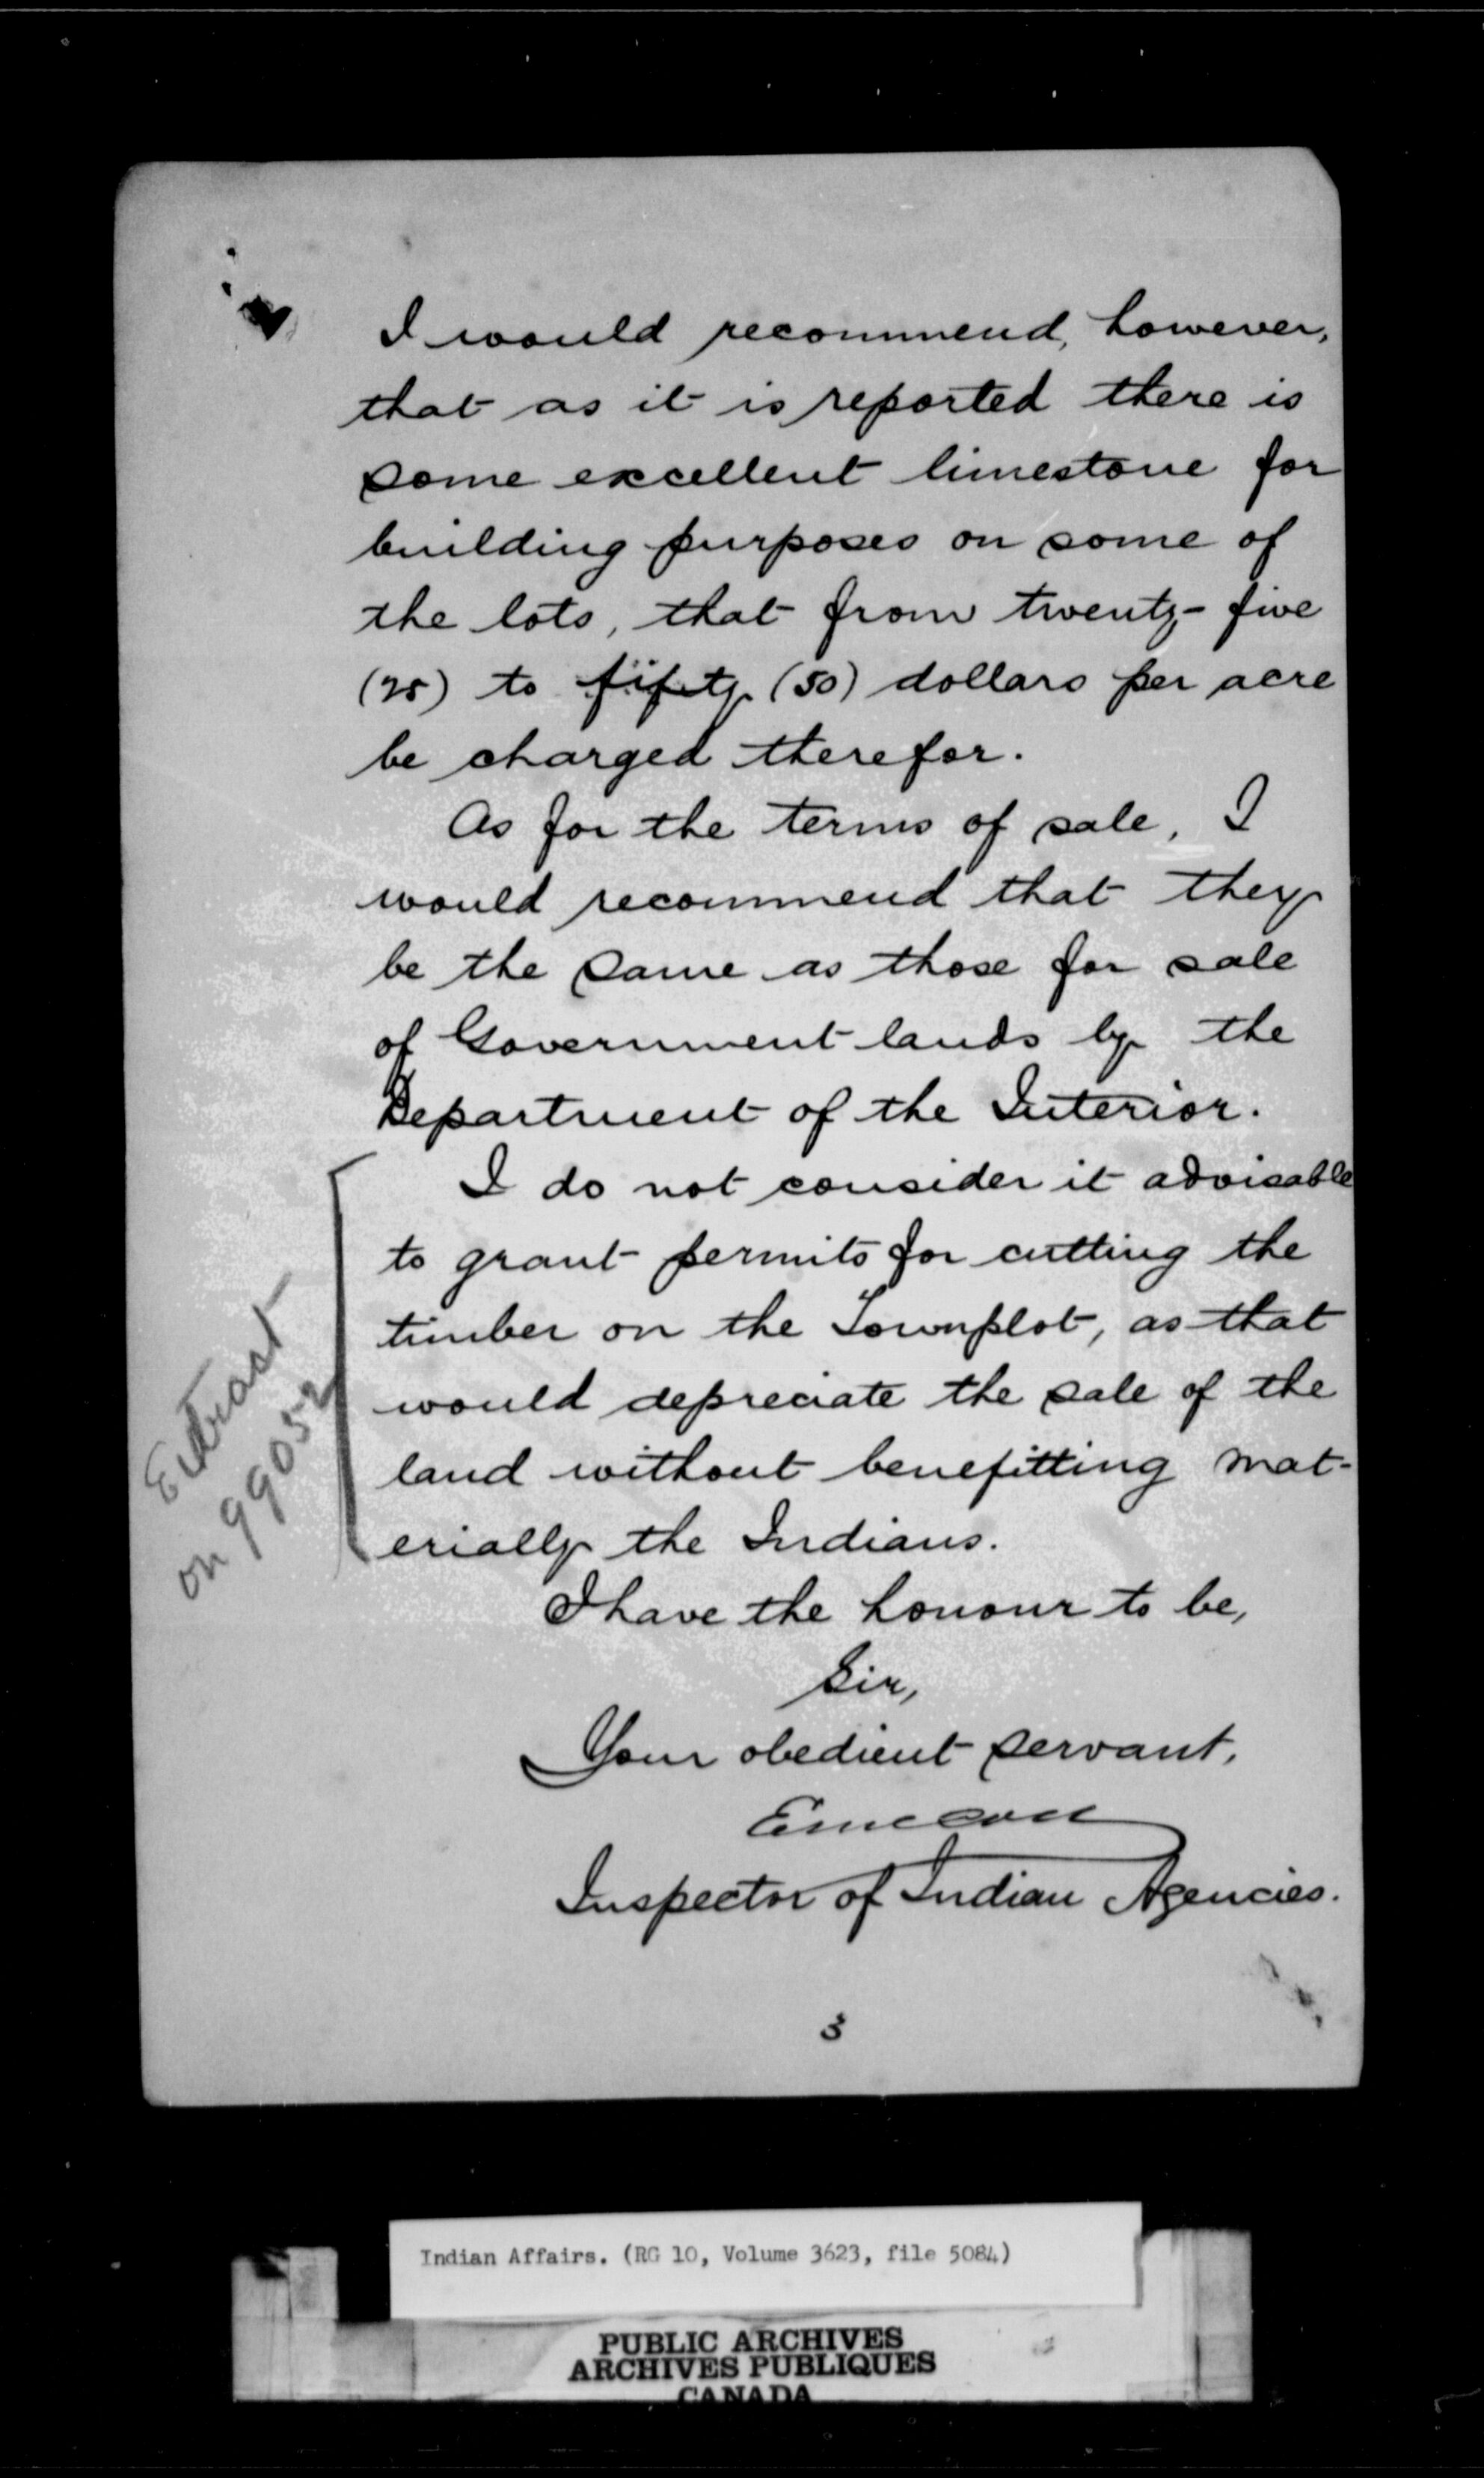 I would recommend, however,
that as it is reported there is
some excellent limestone for
building purposes on some of
the lots, that from twenty-five
(25) to fifty (50) dollars per acre
be charged therefor.
As for the terms of sale, I
would recommend that they
be the same as those for sale
of Government lands by the
Department of the Interior.
I do not consider it advisable
to grant permits for cutting the
timber on the Townplot, as that
would depreciate the sale of the
land without benefitting mat-
erially the Indians.
Extract
on 99052
I have the honour to be,
Sir,
Your obedient servant,
Inspector of Indian Agencies.
3
Indian Affairs. (RG 10, Volume 3623, file 5084)
PUBLIC ARCHIVES
ARCHIVES PUBLIQUES
CANADA